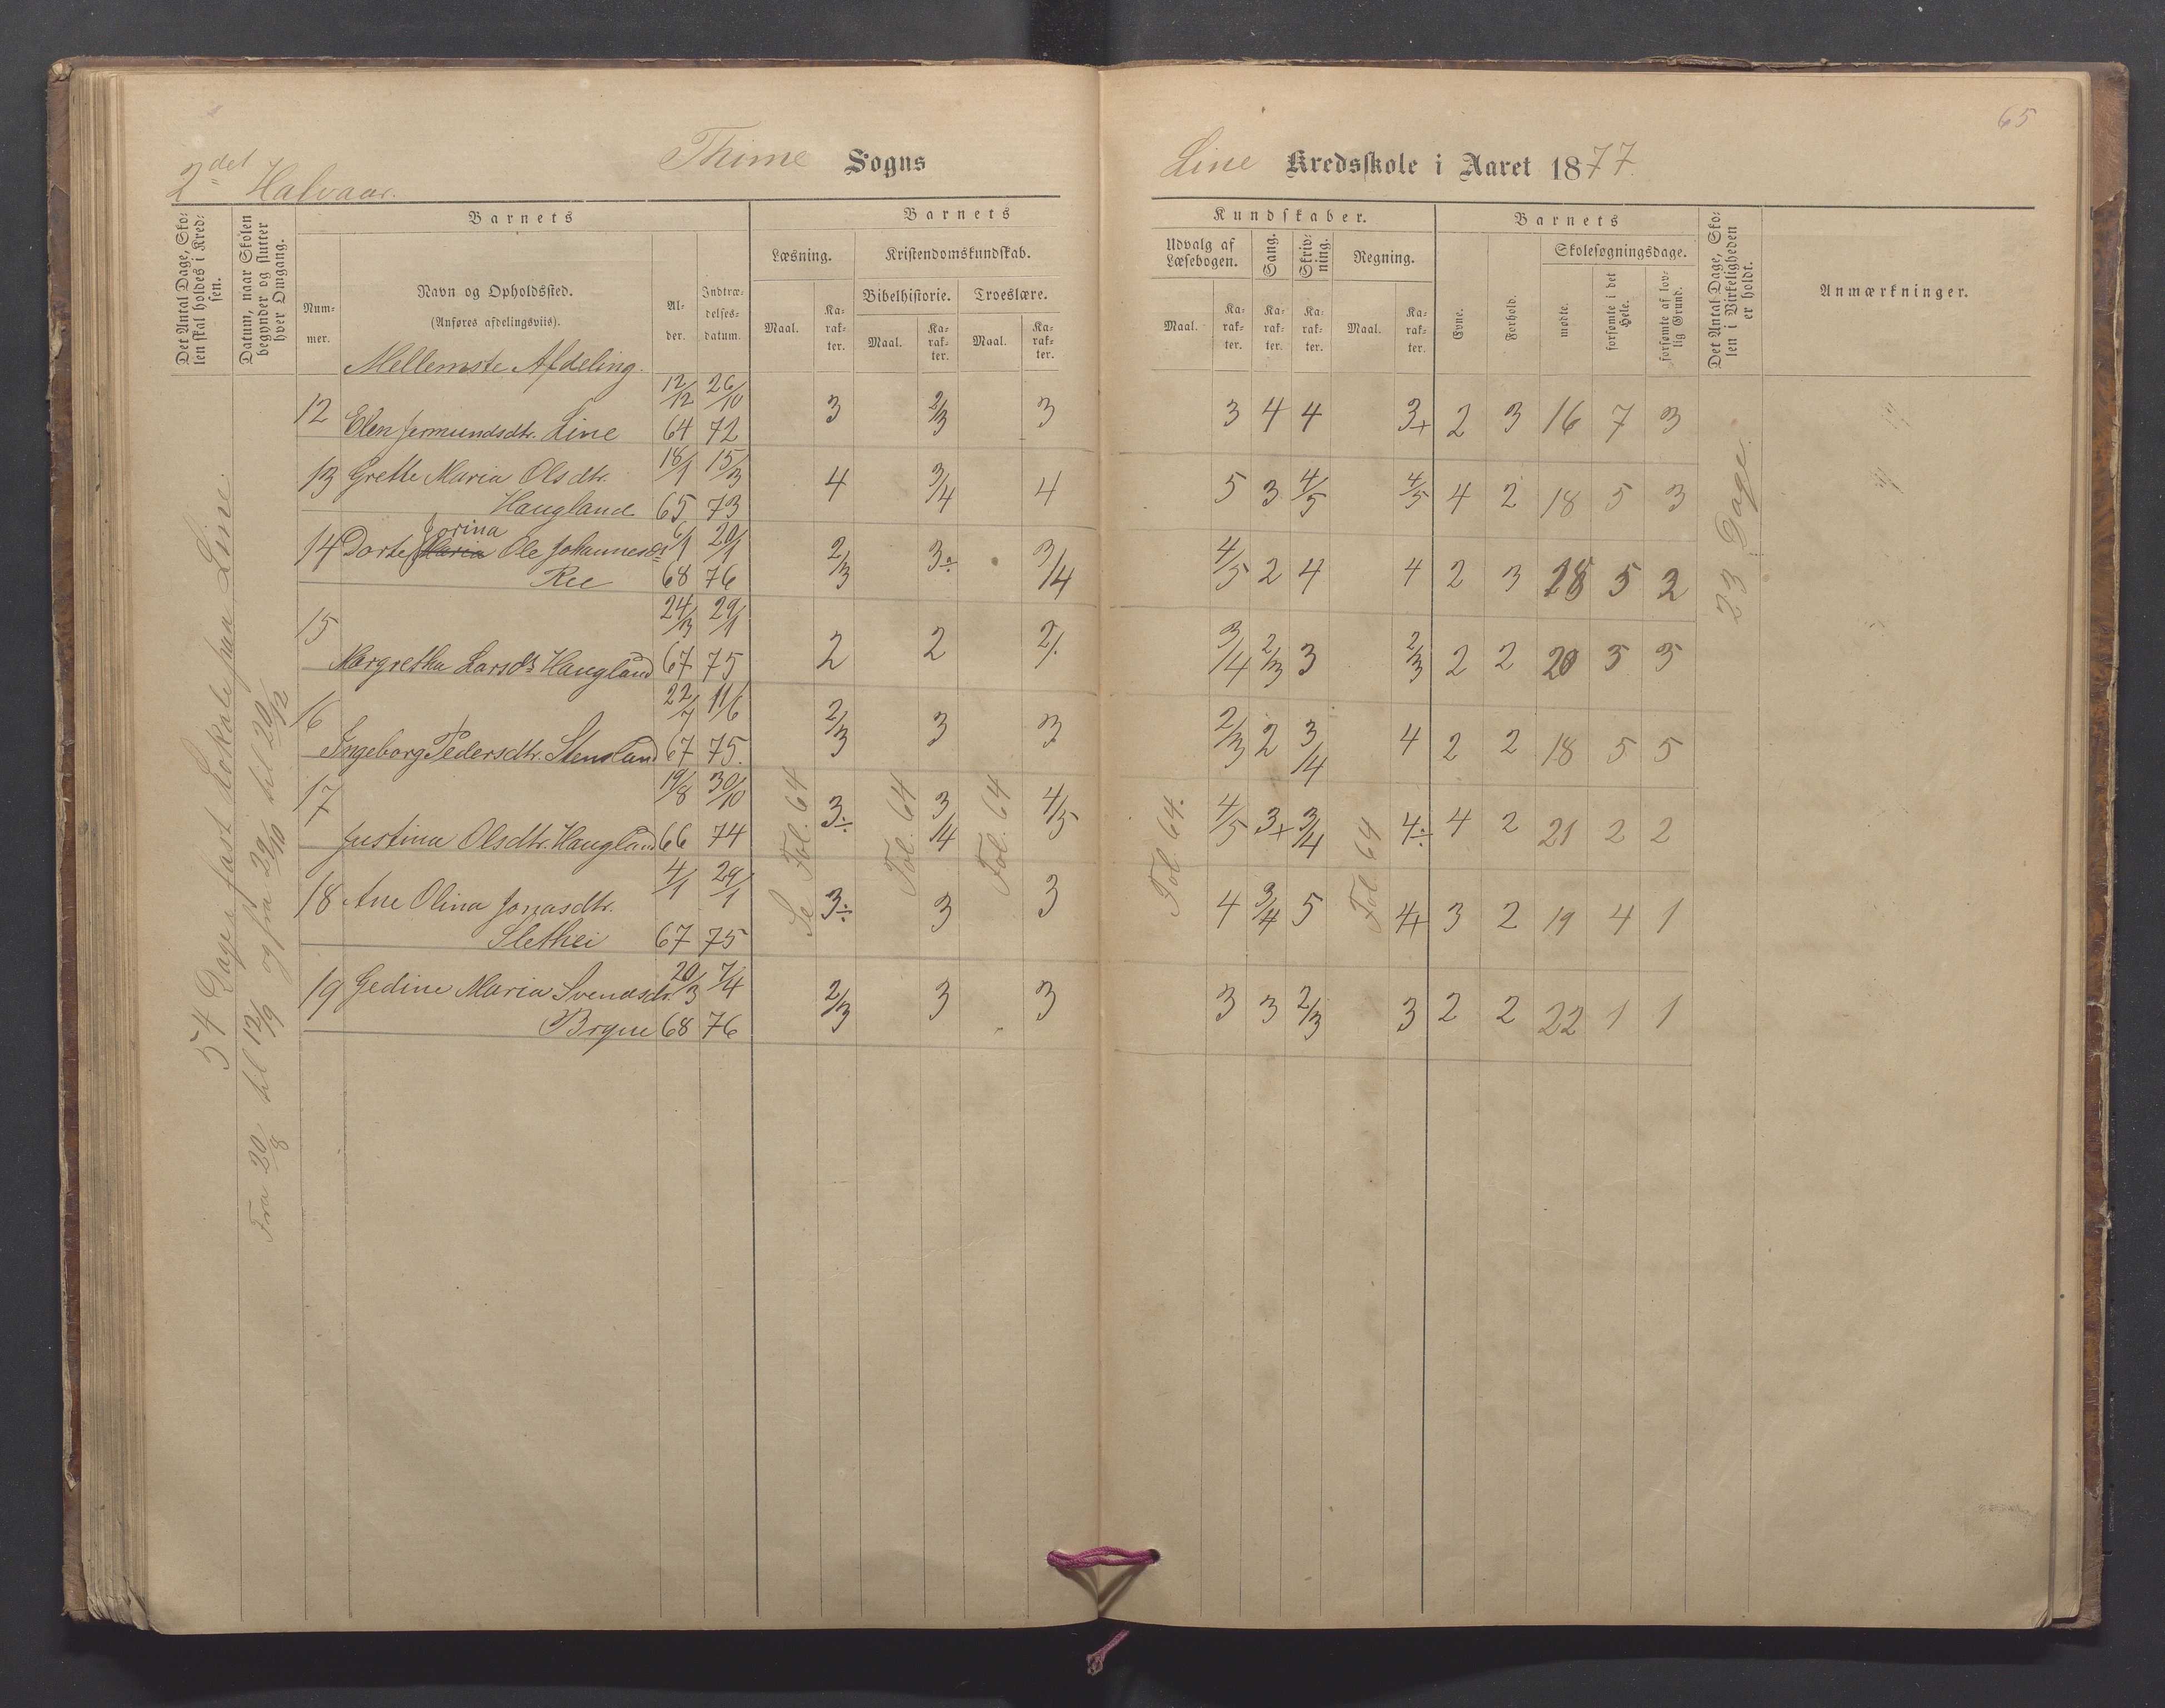 65
2det Halvaar.
Thime Sogns
Line Kredsskole i Aaret 1877.
Det Antal Dage, Skolen skal holdes i Kredsen.
Datum, naar Skolen begynder og slutter hver Omgang.
Barnets
Nummer.
Navn og Opholdssted.
(Anføres afdelingsviis).
Alder.
Indtrædelsesdatum.
Barnets
Læsning.
Kristendomskundskab.
Bibelhistorie.
Troeslære.
Maal.
Karakter.
Maal.
Karakter.
Maal.
Karakter.
Kundskaber.
Udvalg af Læsebogen.
Sang.
Skrivning.
Regning.
Maal.
Karakter.
Karakter.
Karakter.
Maal.
Karakter.
Barnets
Evne.
Forhold.
Skolesøgningsdage.
mødte.
forsømte i det Hele.
forsømte af lovlig Grund.
Det Antal Dage, Skolen i Virkeligheden er holdt.
Anmærkninger.
54 Dage i fast Lokale paa Line.
Fra 20/8 til 12/9 og fra 29/10 til 20/12
Mellemste Afdeling.
12 Elen Jermundsdtr. Line 12/12 64 26/10 72 3 2/3 3 3 4 4 3+ 2 3 16 7 3
13 Grethe Maria Olsdtr. Haugland 18/1 65 15/3 73 4 3/4 4 5 3 4/5 4/5 4 2 18 5 3
14 Dorte Maria Jorina Ole Johannesdr Ree 6/1 68 20/1 76 2/3 3÷ 3/4 4/5 2 4 4 2 3 18 5 2
15 Margretha Larsdr Haugland 24/3 67 29/1 75 2 2 2/. 3/4 2/3 3 2/3 2 2 20 3 3
16 Ingeborg Pedersdtr. Stensland 22/7 67 11/6 75. 2/3 3 3 2/3 2 3/4 4 2 2 18 5 5
17 Justina Olsdtr. Haugland 19/8 66 30/10 74 3÷ 3/4 4/5 4/5 3+ 3/4 4÷ 4 2 21 2 2
18 Ane Olina Jonasdtr. Slethei 4/1 67 29/1 75 3÷ 3 3 4 3/4 5 4+ 3 2 19 4 1
19 Gedine Maria Svendsdr. Bryne 20/3 68 7/4 76 2/3 3 3 3 3 2/3 3 2 2 22 1 1
Se Fol. 64
Fol. 64
Fol. 64
Fol. 64.
Fol. 64
23 Dage.